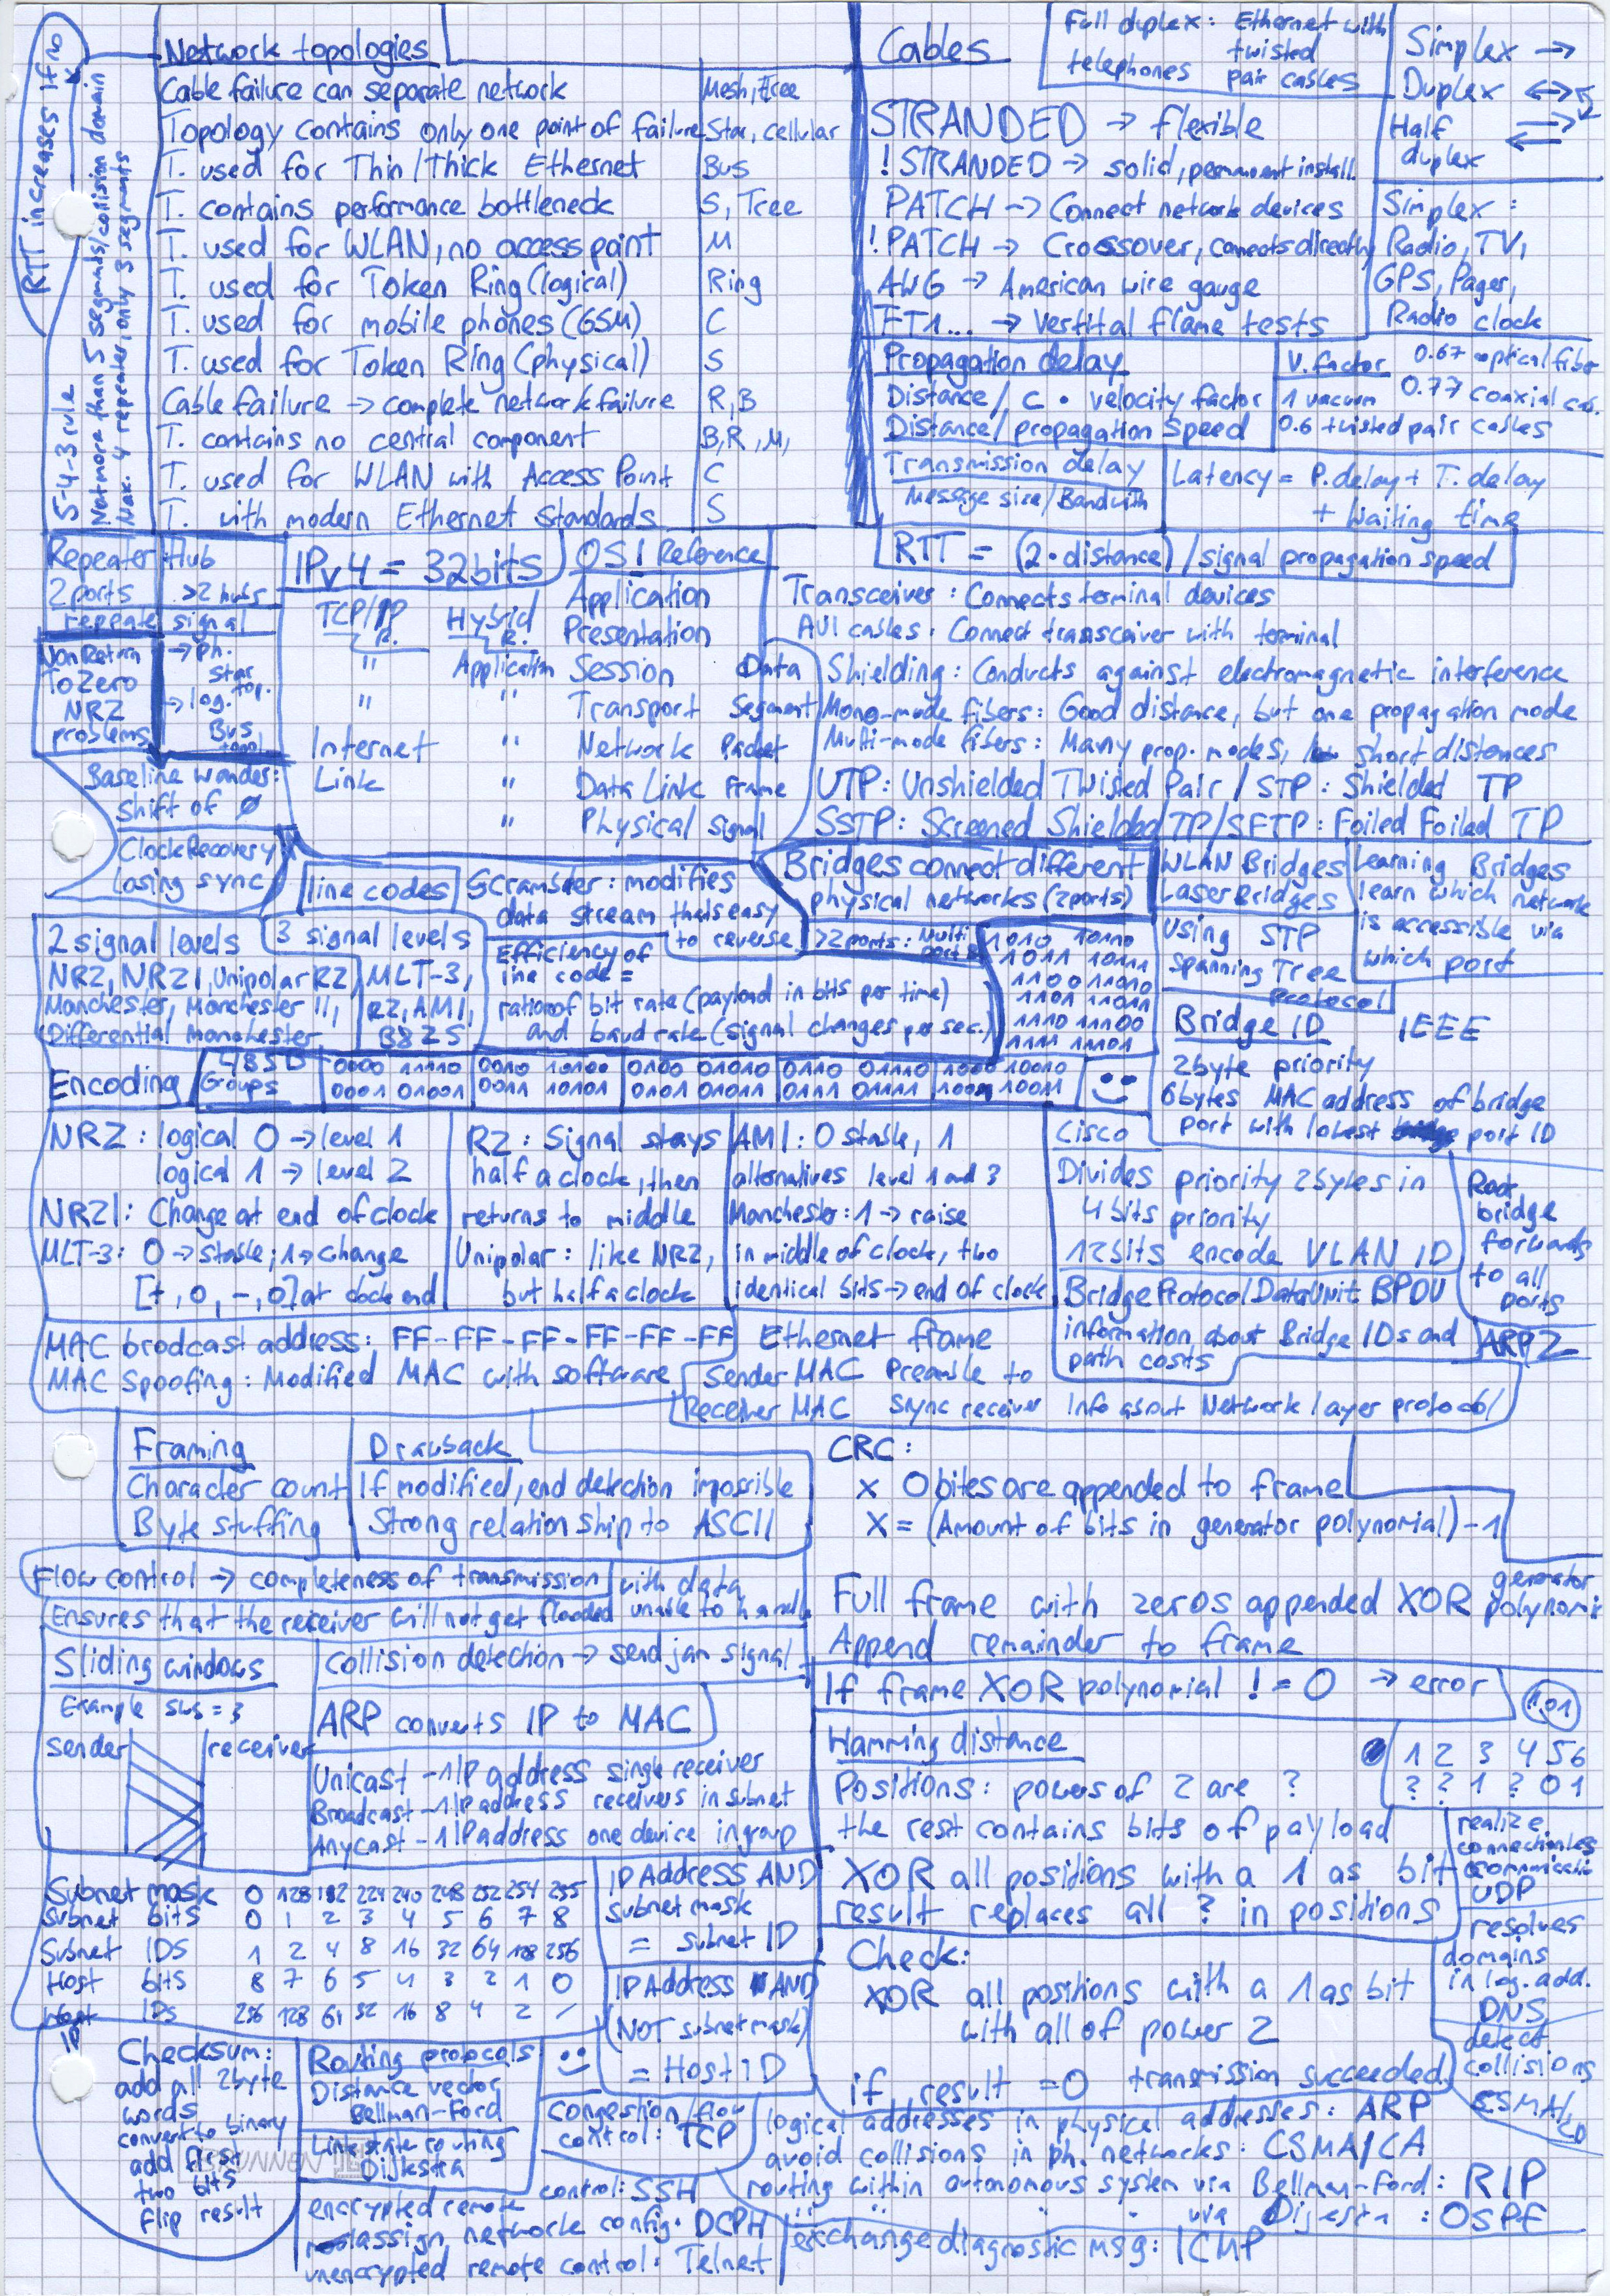 RTT increases if no
5-4-3 rule
Not more than 5 segments/collision domain
Max. 4 repeater, only 3 segments
Network topologies
Cable failure can separate network Mesh, Tree
Topology contains only one point of failure Star, cellular
T. used for Thin/Thick Ethernet Bus
T. contains performance bottleneck S, Tree
T. used for WLAN, no access point M
T. used for Token Ring (logical) Ring
T. used for mobile phones (GSM) C
T. used for Token Ring (physical) S
Cable failure → complete network failure R, B
T. contains no central component B, R, M,
T. used for WLAN with Access Point C
T. with modern Ethernet standards S
Cables
Full duplex: Ethernet with
telephones twisted
pair cables
Simplex →
Duplex ↔
Half
duplex
STRANDED → flexible
! STRANDED → solid, permanent install.
PATCH → Connect network devices
! PATCH → Crossover, connects directly
AWG → American wire gauge
FT1... → Vertital flame tests
Simplex:
Radio, TV,
GPS, Pager,
Radio clock
Propagation delay
Distance / c • velocity factor
Distance / propagation speed
V. factor 0.67 optical fiber
1 vacuum 0.77 coaxial cab.
0.6 twisted pair cables
Transmission delay
Message size/Bandwith
Latency = P. delay + T. delay
+ Waiting time
RTT = (2 • distance) / signal propagation speed
Repeater Hub
2 ports >2 hubs
repeate signal
NonReturn
ToZero
NRZ
problems
→ Ph.
Star
→ log. top.
Bus
topol
Baseline wander:
Shift of Ø
Clock Recovery
Losing sync
IPv4 = 32bits
OSI Reference
TCP/IP R. Hybrid R. Application
Presentation
" Application Session Data
" " Transport Segment
Internet " Network Packet
Link " Data Link Frame
" Physical Signal
Transceiver: Connects terminal devices
AUI cables: Connect transsceiver with terminal
Shielding: Conducts against electromagnetic interference
Mono-mode fibers: Good distance, but one propagation mode
Multi-mode fibers: Many prop. modes, short distances
UTP: Unshielded Twisted Pair / STP: Shielded TP
SSTP: Screened Shielded TP/SFTP: Foiled Foiled TP
line codes
Scrambler: modifies
data stream thats easy
to reverse
Bridges connect different
physical networks (2ports)
>2 ports: Multi
port B.
WLAN Bridges
Laser Bridges
using STP
Spanning Tree
Protocol
Learning Bridges
learn which network
is accessible via
which port
2 signal levels
NRZ, NRZI, Unipolar RZ
Manchester, Manchester II,
Differential Manchester
3 signal levels
MLT-3,
RZ, AMI,
B8ZS
Efficiency of
line code =
ratio of bit rate (payload in bits per time)
and baud rate (signal changes per sec.)
1010 10110
1011 10111
1100 11010
1101 11011
1110 11100
1111 11101
Encoding
4B5B
Groups
0000 11110 0010 10100 0100 01010 0110 01110 1000 10010
0001 01001 0011 10101 0101 01011 0111 01111 1001 10011
Bridge ID IEEE
2byte priority
6bytes MAC address of bridge
port with lowest port ID
NRZ: logical 0 → level 1
logical 1 → level 2
NRZI: Change at end of clock
MLT-3: 0 → stable; 1 → change
[+, 0, -, 0] at clock end
RZ: Signal stays
half a clock, then
returns to middle
Unipolar: like NRZ,
but half a clock
AMI: 0 stable, 1
alternatives level 1 and 3
Manchester: 1 → raise
in middle of clock, two
identical bits → end of clock
Cisco
Divides priority 2bytes in
4 bits priority
12bits encode VLAN ID
Root
bridge
forwards
to all
ports
Bridge Protocol Data Unit BPDU
information about Bridge IDs and
path costs
ARP2
MAC brodcast address: FF-FF-FF-FF-FF-FF
MAC Spoofing: Modified MAC with software
Ethernet frame
Sender MAC Preamble to
Receiver MAC sync receiver Info about Network layer protocol
Framing Drawback
Character count If modified, end detection impossible
Byte stuffing Strong relationship to ASCII
CRC:
x 0 bites are appended to frame
X = (Amount of bits in generator polynomial) - 1
Full frame with zeros appended XOR generator polynomi
Append remainder to frame
If frame XOR polynomial != 0 → error
Flow control → completeness of transmission
Ensures that the receiver will not get flooded with data unable to handle
Sliding windows
Example SWS = 3
sender receiver
Collision detection → send jam signal
ARP converts IP to MAC
Unicast - 1 IP address single receiver
Broadcast - 1 IP address receivers in subnet
Anycast - 1 IP address one device in group
Hamming distance
Positions: powers of 2 are ?
the rest contains bits of payload
XOR all positions with a 1 as bit
result replaces all ? in positions
1 2 3 4 5 6
? ? 1 ? 0 1
Check:
XOR all positions with a 1 as bit
with all of power 2
if result = 0 transmission succeeded
realize
connectionless
communicatio
UDP
resolves
domains
in log. add.
DNS
detect
collisions
CSMA/CD
Subnet mask 0 128 192 224 240 248 252 254 255
Subnet bits 0 1 2 3 4 5 6 7 8
Subnet IDS 1 2 4 8 16 32 64 128 256
Host bits 8 7 6 5 4 3 2 1 0
Host IDS 256 128 64 32 16 8 4 2 /
IP Address AND
subnet mask
= subnet ID
IP Address AND
(NOT subnet mask)
= Host ID
IP
Checksum:
add all 2byte
words
convert to binary
add first
two bits
flip result
Routing protocols
Distance vector
Bellman-Ford
Link state routing
Dijkstra
BRUNNEN
Congestion/flow
control: TCP
encrypted remote control: SSH
assign network config: DCPH
unencrypted remote control: Telnet
logical addresses in physical addresses: ARP
avoid collisions in ph. networks: CSMA/CA
routing within autonomous system via Bellman-Ford: RIP
" " " via Dijestra: OSPF
exchange diagnostic msg: ICMP